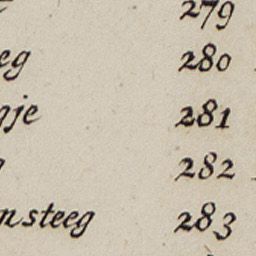 279
eg 280
gje 281
282
nsteeg 283